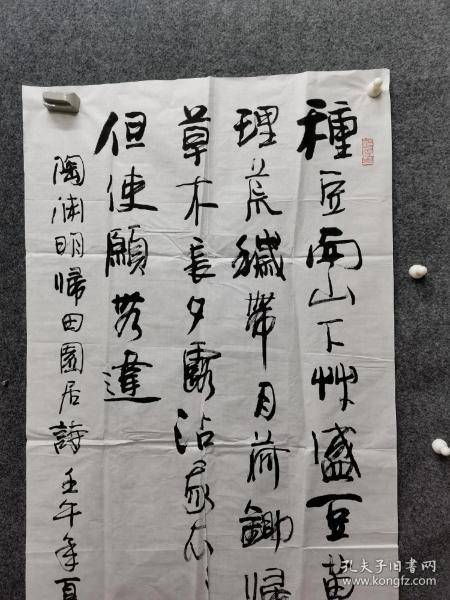 種豆南山下艸盛豆苗
理荒穢帶月荷鋤歸
草木長夕露沾我衣
但使願無違
陶渊明歸田園居詩壬午年夏
孔夫子旧书网
www.kongfz.com